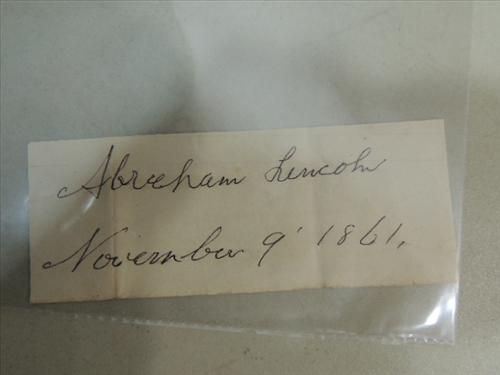 Abraham Lincoln
November 9' 1861.